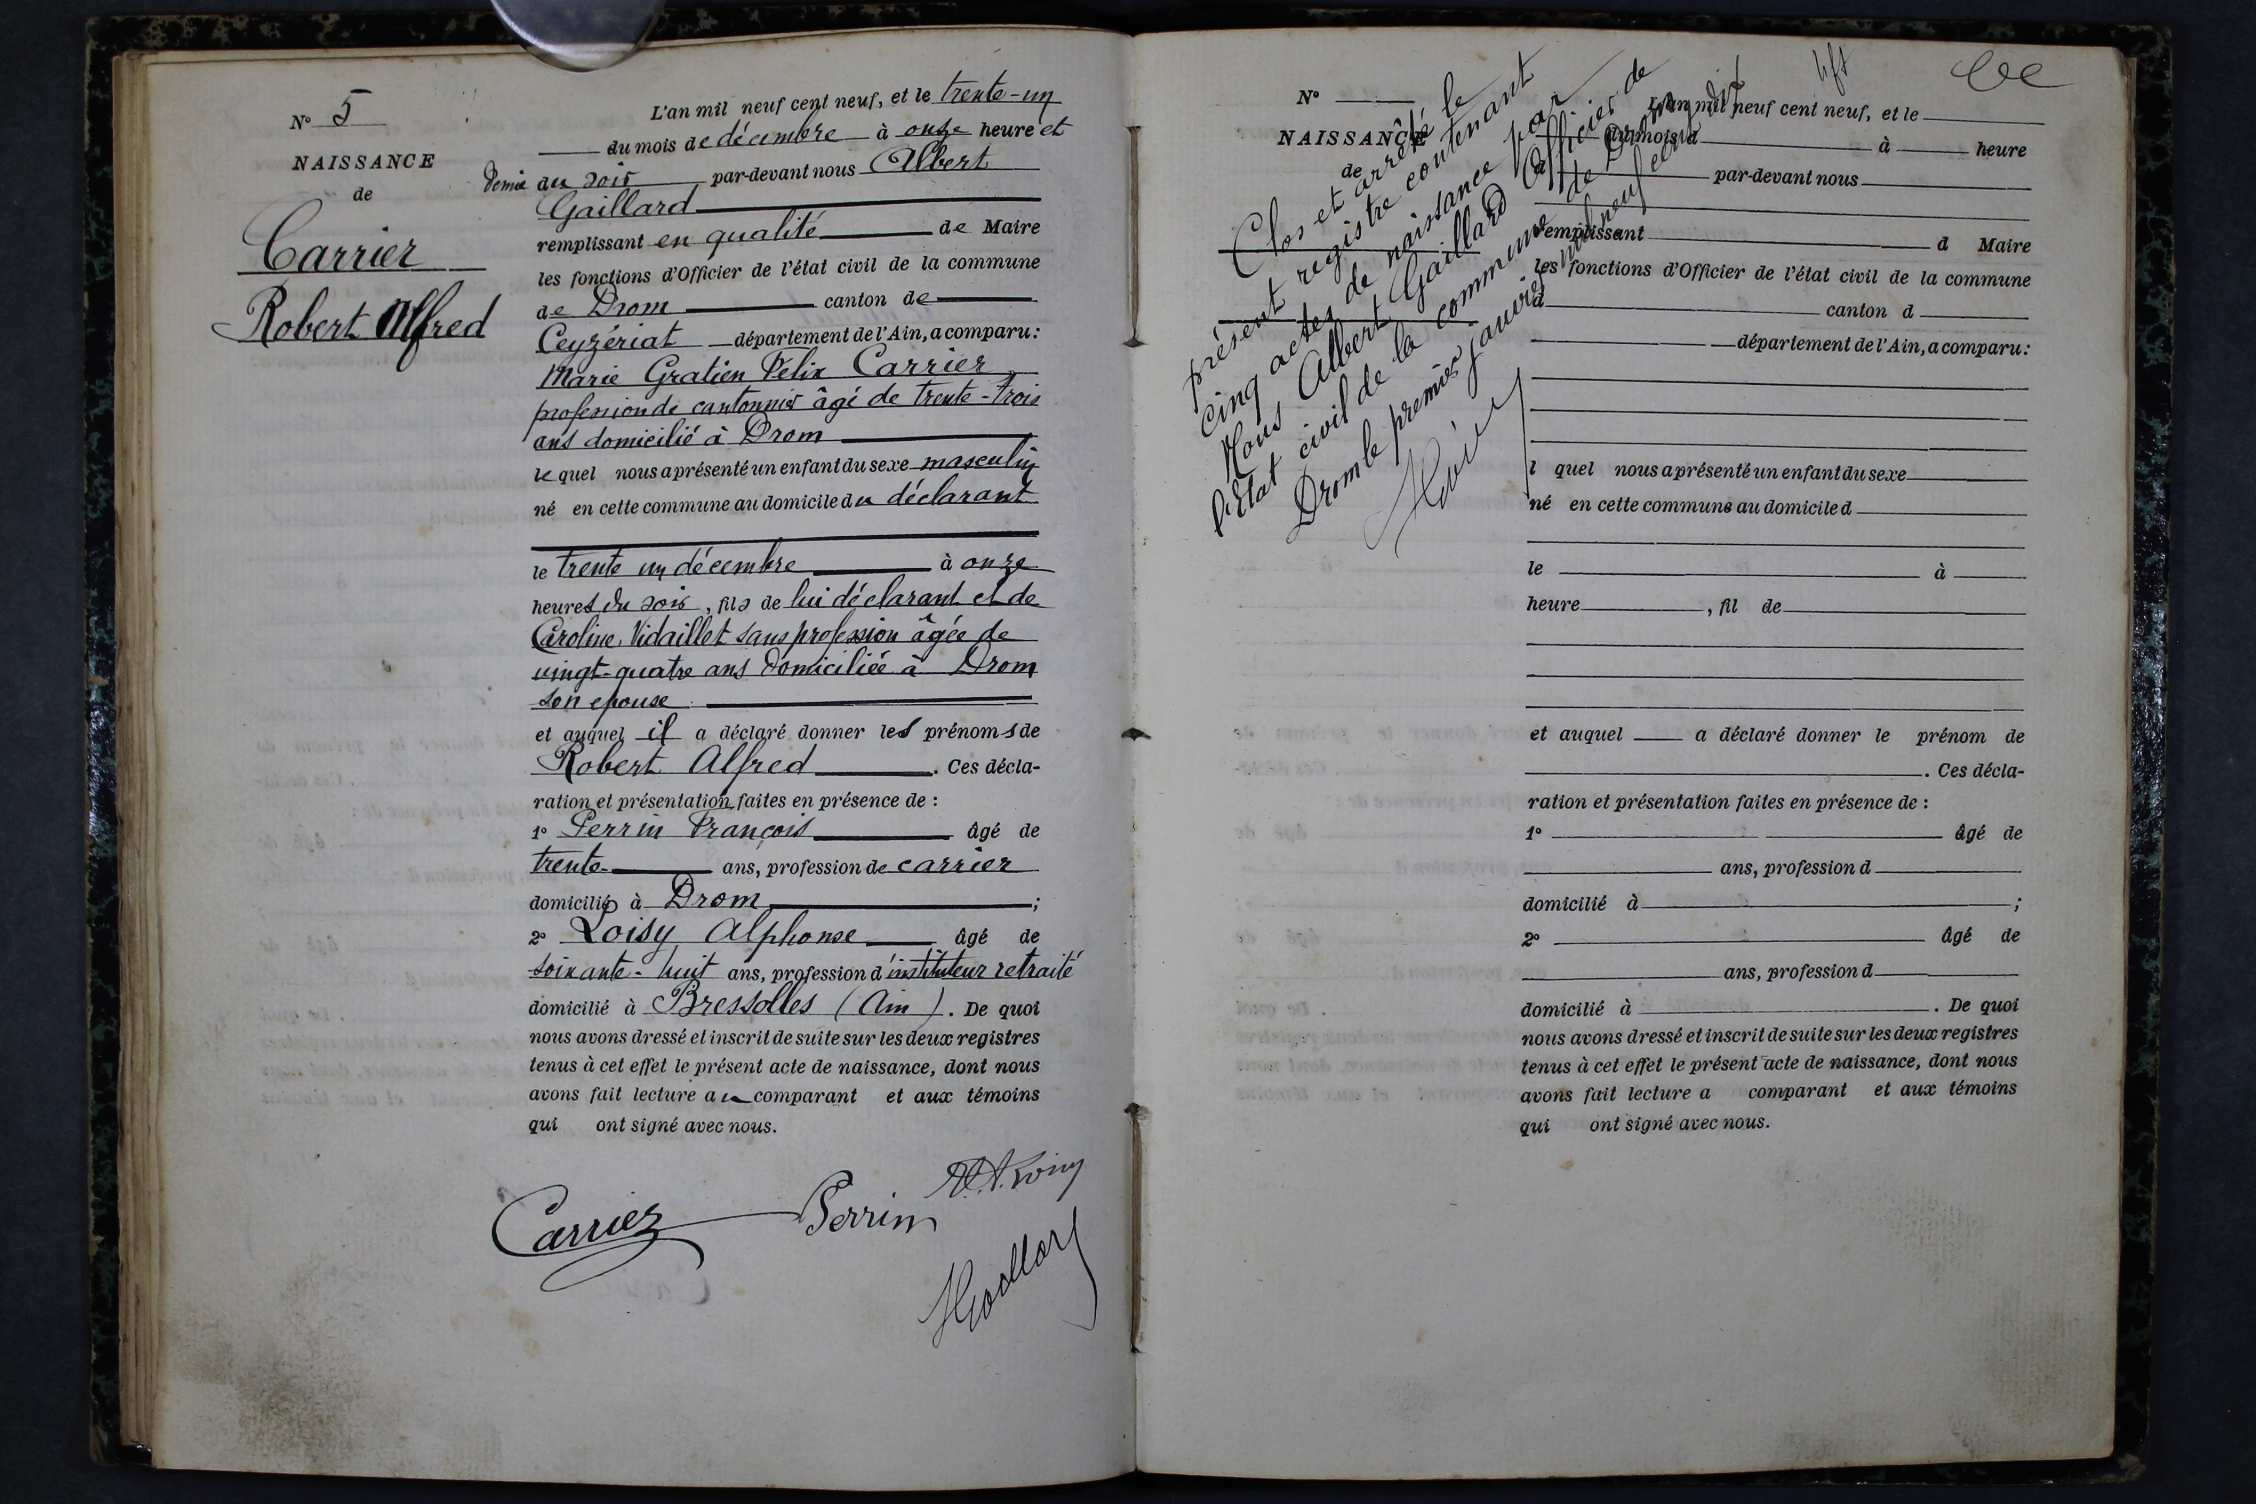 N° 5
NAISSANCE
de
Carrier
Robert Alfred
L'an mil neuf cent neuf, et le trente-un
du mois de décembre à onze heure et
demie du soir par-devant nous Albert
Gaillard
remplissant en qualité de Maire
les fonctions d'Officier de l'état civil de la commune
de Drom canton de
Ceyzériat département de l'Ain, a comparu:
Marie Gratien Félix Carrier
profession de cantonnier âgé de trente-trois
ans domicilié à Drom
lequel nous a présenté un enfant du sexe masculin
né en cette commune au domicile du déclarant
le trente un décembre à onze
heures du soir, fils de lui déclarant et de
Caroline Vidaillet sans profession âgée de
vingt-quatre ans domiciliée à Drom
son epouse
et auquel il a déclaré donner les prénoms de
Robert Alfred. Ces décla-
ration et présentation faites en présence de :
1° Perrin François âgé de
trente ans, profession de carrier
domicilié à Drom ;
2° Loisy Alphonse âgé de
soixante-huit ans, profession d'instituteur retraité
domicilié à Bressolles (Ain). De quoi
nous avons dressé et inscrit de suite sur les deux registres
tenus à cet effet le présent acte de naissance, dont nous
avons fait lecture au comparant et aux témoins
qui ont signé avec nous.
Carrier Perrin A. Loisy
Gaillard
N°
NAISSANCE
de
Clos et arrêté le
présent registre contenant
cinq actes de naissance par
Nous Albert Gaillard Officier de
l'Etat civil de la commune de Drom
Drom le premier janvier mil neuf cent dix
L'an mil neuf cent neuf, et le
du mois d à heure
par-devant nous
remplissant d Maire
les fonctions d'Officier de l'état civil de la commune
d canton d
département de l'Ain, a comparu:
l quel nous a présenté un enfant du sexe
né en cette commune au domicile d
le à
heure , fil de
et auquel a déclaré donner le prénom de
. Ces décla-
ration et présentation faites en présence de :
1° âgé de
ans, profession d
domicilié à ;
2° âgé de
ans, profession d
domicilié à . De quoi
nous avons dressé et inscrit de suite sur les deux registres
tenus à cet effet le présent acte de naissance, dont nous
avons fait lecture a comparant et aux témoins
qui ont signé avec nous.